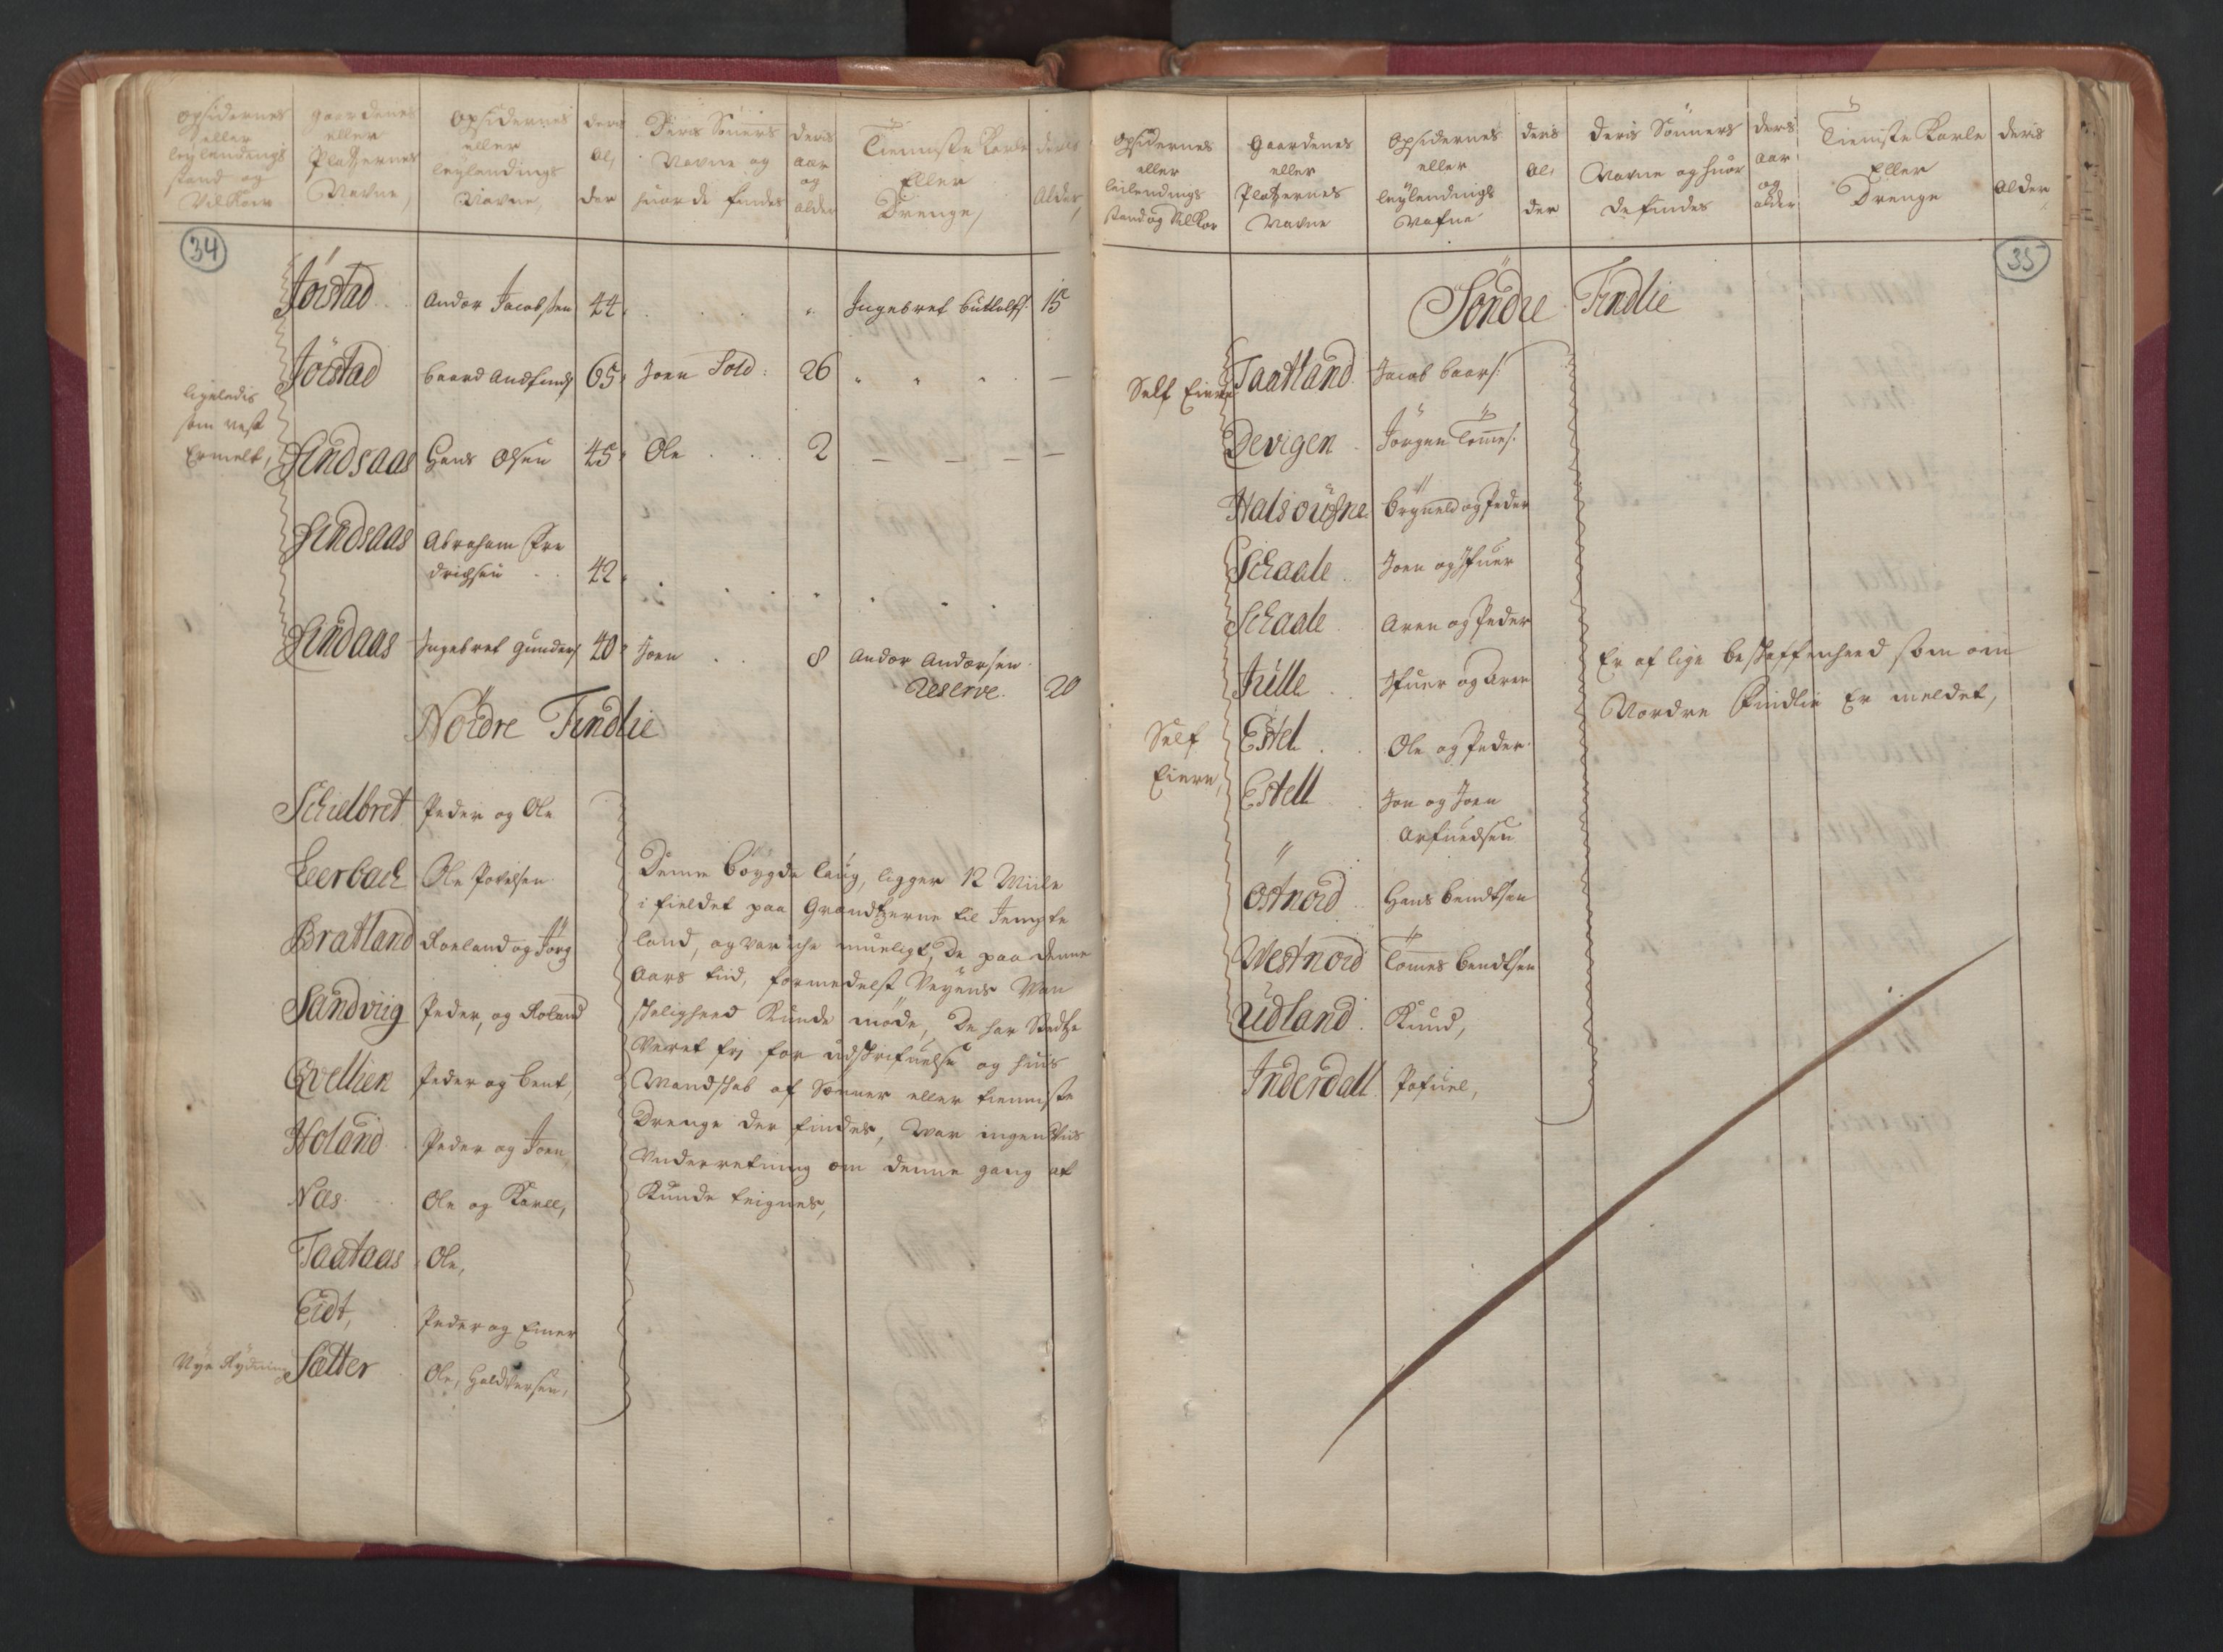 Opsidernes
eller
leylendings
stand og
Vilkaar
gaardenes
eller
Platzernes
Navne,
Opsidernes
eller
leylendings
Navne,
deris
al,
der
Deris Sönners
Navne og
huor de findes
deris
aar
og
alder
Tienniste Karle
Eller
Drenge,
deris
Alder,
34
Jörstad Andor Jacobsen 44 Ingebret 15
Jörstad Baard 65 Joen Sold: 26
ligeledis
som nest
Ermelt,
Sindsaas Hans Olsen 45 Ole 2
Sindsaas Abraham Fre
drichsen 42
Sindaas Ingebret Gunders: 40 Joen 8 Andor Andorsen
Reserve. 20
Nordre Findlie
Schielbret Peder og Ole
Leerbach Ole Povelsen
Bratland Roeland og Jörg
Sandviig Peder, og Roland
Qvellien Peder og Bent,
Holand Peder og Joen,
Næs Ole og Karll,
Taataas Ole,
Eidt, Peder og Einer
Nye Rydning Sætter Ole, Haldversen,
Denne böygde laug, ligger 12 Miile
i fieldet paa Grændtzerne til Jempte
land, og var iche mueligt, De paa denne
Aars tiid, formedelst Veyens Wan
skeligheed Kunde möde, De har Stedtze
Veret fri for udskrifuelse og huis
Mandskab af Sönner eller tienniste
Drenge der findes, War ingen Viis
Underretning om denne gang at
Kunde teignes,
Opsidernes
eller
leilendings
stand og Vilkor
Gaardenes
eller
Platzernes
Navne
Opsidernes
eller
leylendings
Nafne
deris
al,
der
Deris Sönners
Navne og huor
de findes
deris
aar
og
alder
Tienniste Karle
Eller
Drenge
deris
Alder,
35
Söndre Findlie
Self Eiere Taatland Jacob Baars:
Devigen Jörgen Tömes:
HalsouGne Brynneld og Peder
Schaale Joen og Ifuer
Schaale Aren og Peder
Julle Ifuer og Aren
Self
Eiere,
Estel Ole og Peder
Estell Jon og Joen
Arfuedsen
Östnord Hans Bendtsen
Westnord Tömes Bendtsen
Udland Knud,
Inderdall Pofuel,
Er af lige beskaffenheed som om
Nordre Findlie Er meldet,